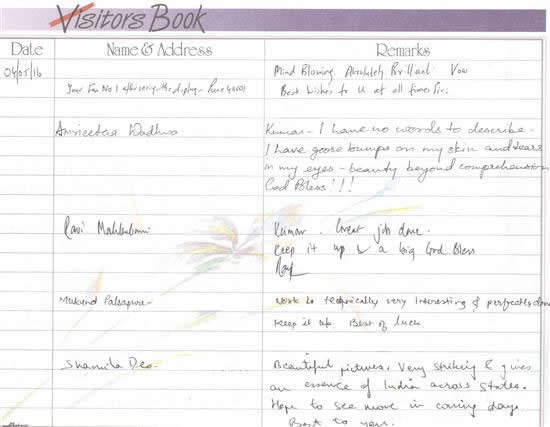 Visitors Book
Date Name & Address Remarks
04/05/16 Mind Blowing. Absolutely Brilliant. Vow
Your Fan No 1 after seeing the display - Pune 411001 Best wishes to U at all times Sir.
Wadhwa Kumar - I have no words to describe -
I have goose bumps on my skin and tears
in my eyes - beauty beyond comprehension
God Bless!!!
Ravi Kumar. Great job done.
Keep it up & a big God Bless
Mukund Palsapure - work is technically very interesting & perfectly done
Keep it up. Best of luck
Sharmila Deo. Beautiful pictures. Very striking & gives
an essence of India across states.
Hope to see more in coming days.
Best to you.